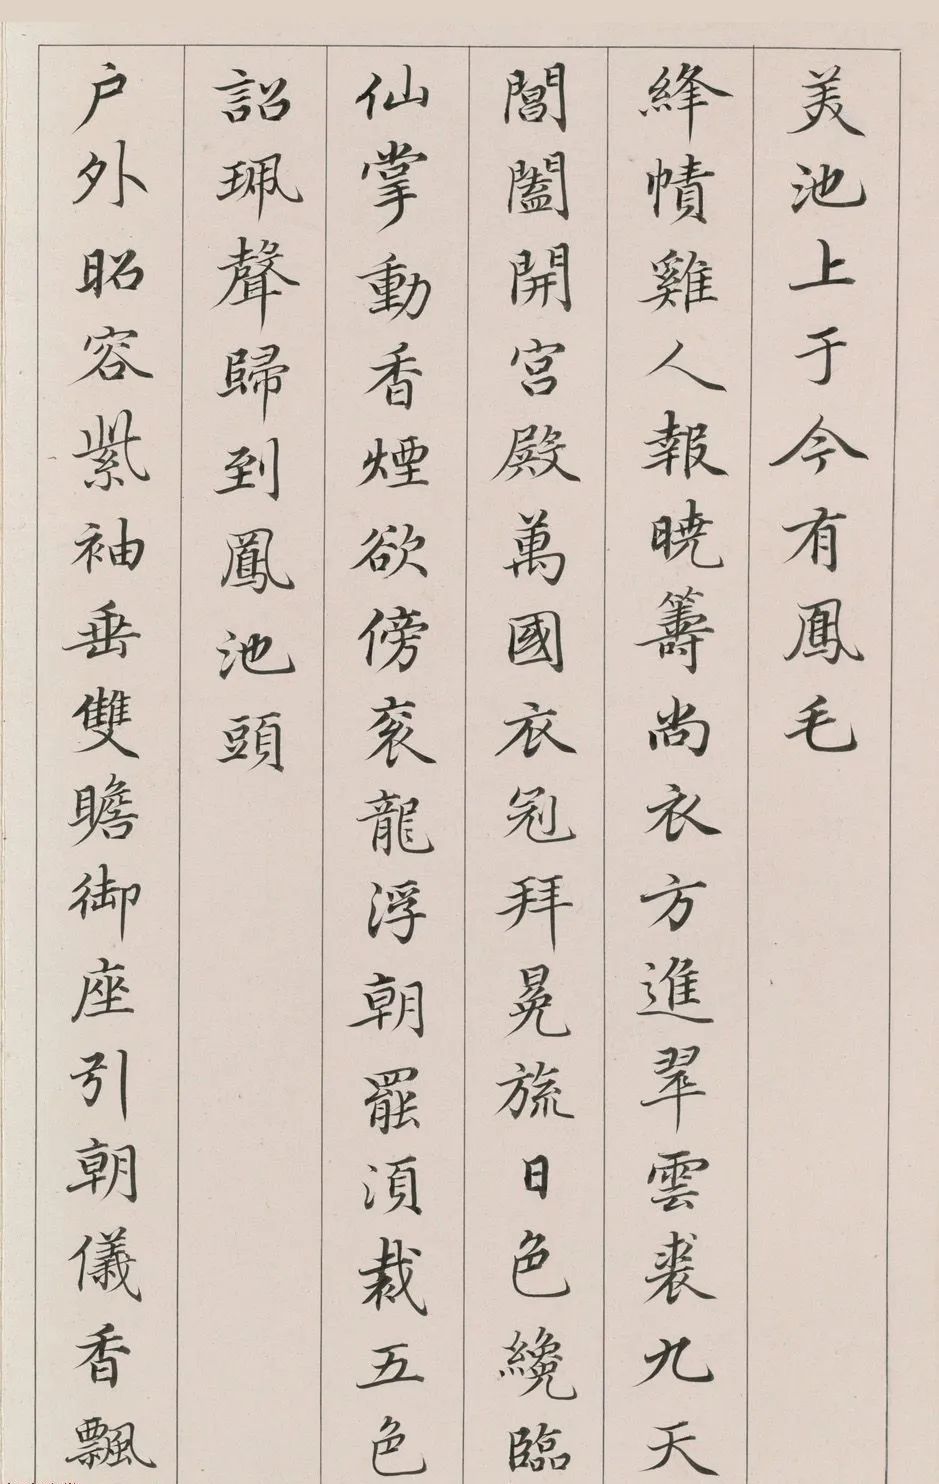 美池上于今有鳳毛
絳幘雞人報曉籌尚衣方進翠雲裘九天
閶闔開宮殿萬國衣冠拜冕旒日色纔臨
仙掌動香煙欲傍袞龍浮朝罷須裁五色
詔珮聲歸到鳳池頭
户外昭容紫袖垂雙瞻御座引朝儀香飄